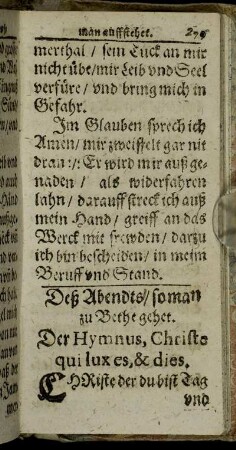 man auffstehet.
merthal / sein Tuck an mir
nicht übe/ mir Leib vnd Seel
verfüre / vnd bring mich in
Gefahr.
Im Glauben sprech ich
Amen/ mir zweiffelt gar nit
dran :/: Er wird mir auß ge-
naden / als widerfahren
lahn / darauff streck ich auß
mein Hand / greiff an das
Werck mit frewden / darzu
ich bin bescheiden / in meim
Beruff vnd Stand.
Deß Abendts / so man
zu Bethe gehet.
Der Hymnus, Christe
qui lux es, & dies.
CHRiste der du bist Tag
vnd